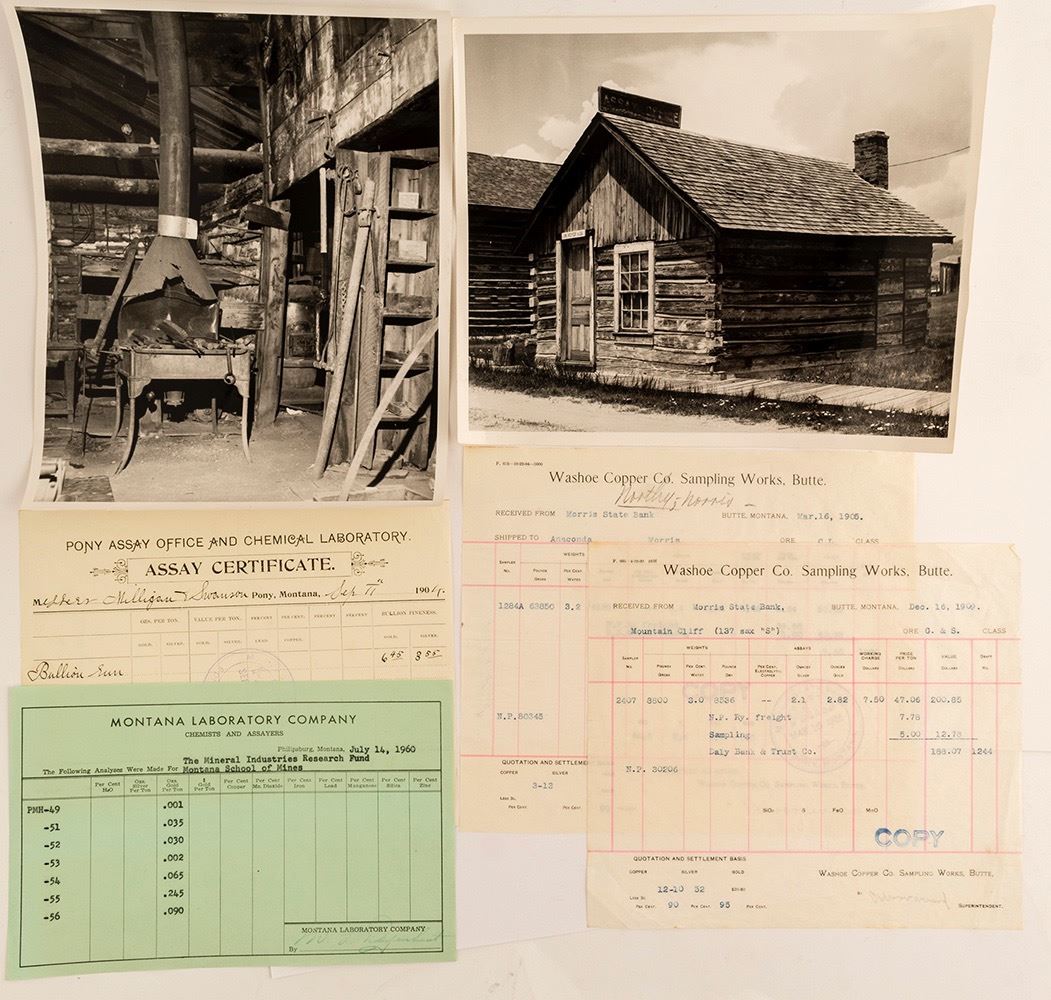 ASSAY OFFICE
PONY ASSAY OFFICE AND CHEMICAL LABORATORY.
ASSAY CERTIFICATE.
Milligan & Swanson Pony, Montana, Sep 11th 190
OZS. PER TON. VALUE PER TON. PERCENT PERCENT PERCENT PERCENT BULLION FINENESS.
GOLD. SILVER. GOLD. SILVER. LEAD COPPER. GOLD. SILVER.
Bullion 645 355
MONTANA LABORATORY COMPANY
CHEMISTS AND ASSAYERS
Philipsburg, Montana, July 14, 1960
The Mineral Industries Research Fund
The Following Analyses Were Made For Montana School of Mines
Per Cent H2O Ozs. Silver Per Ton Ozs. Gold Per Ton $ Gold Per Ton Per Cent Copper Per Cent Mn. Dioxide Per Cent Iron Per Cent Lead Per Cent Manganese Per Cent Silica Per Cent Zinc
PMH-49 .001
-51 .035
-52 .030
-53 .002
-54 .065
-55 .245
-56 .090
MONTANA LABORATORY COMPANY
By
Washoe Copper Co. Sampling Works, Butte.
Norris
RECEIVED FROM Morris State Bank BUTTE, MONTANA, Mar.16, 1905.
SHIPPED TO Anaconda Morris ORE CLASS
SAMPLER NO. WEIGHTS
POUNDS GROSS PER CENT. WATER
1284A 63850 3.2
N.P.80345
QUOTATION AND SETTLEMENT
COPPER SILVER
3-13
LESS DL.
PER CENT. PER
Washoe Copper Co. Sampling Works, Butte.
RECEIVED FROM Morris State Bank, BUTTE, MONTANA, Dec. 16, 1909.
Mountain Cliff (137 sax "S") ORE G. & S. CLASS
SAMPLER NO. WEIGHTS ASSAYS WORKING CHARGE PRICE PER TON VALUE DRAFT NO.
POUNDS GROSS PER CENT. WATER POUNDS DRY PER CENT. ELECTROLYTIC COPPER OUNCES SILVER OUNCES GOLD DOLLARS DOLLARS DOLLARS
2407 8800 3.0 8536 -- 2.1 2.82 7.50 47.06 200.85
N.P. Ry. freight 7.78
Sampling 5.00 12.78
Daly Bank & Trust Co. 188.07 1244
N.P. 30206
SiO2 S FeO MnO
COPY
QUOTATION AND SETTLEMENT BASIS
COPPER SILVER GOLD
12-10 52
LESS DL.
PER CENT. 90 PER CENT. 95 PER CENT.
WASHOE COPPER CO. SAMPLING WORKS, BUTTE,
BY
SUPERINTENDENT.